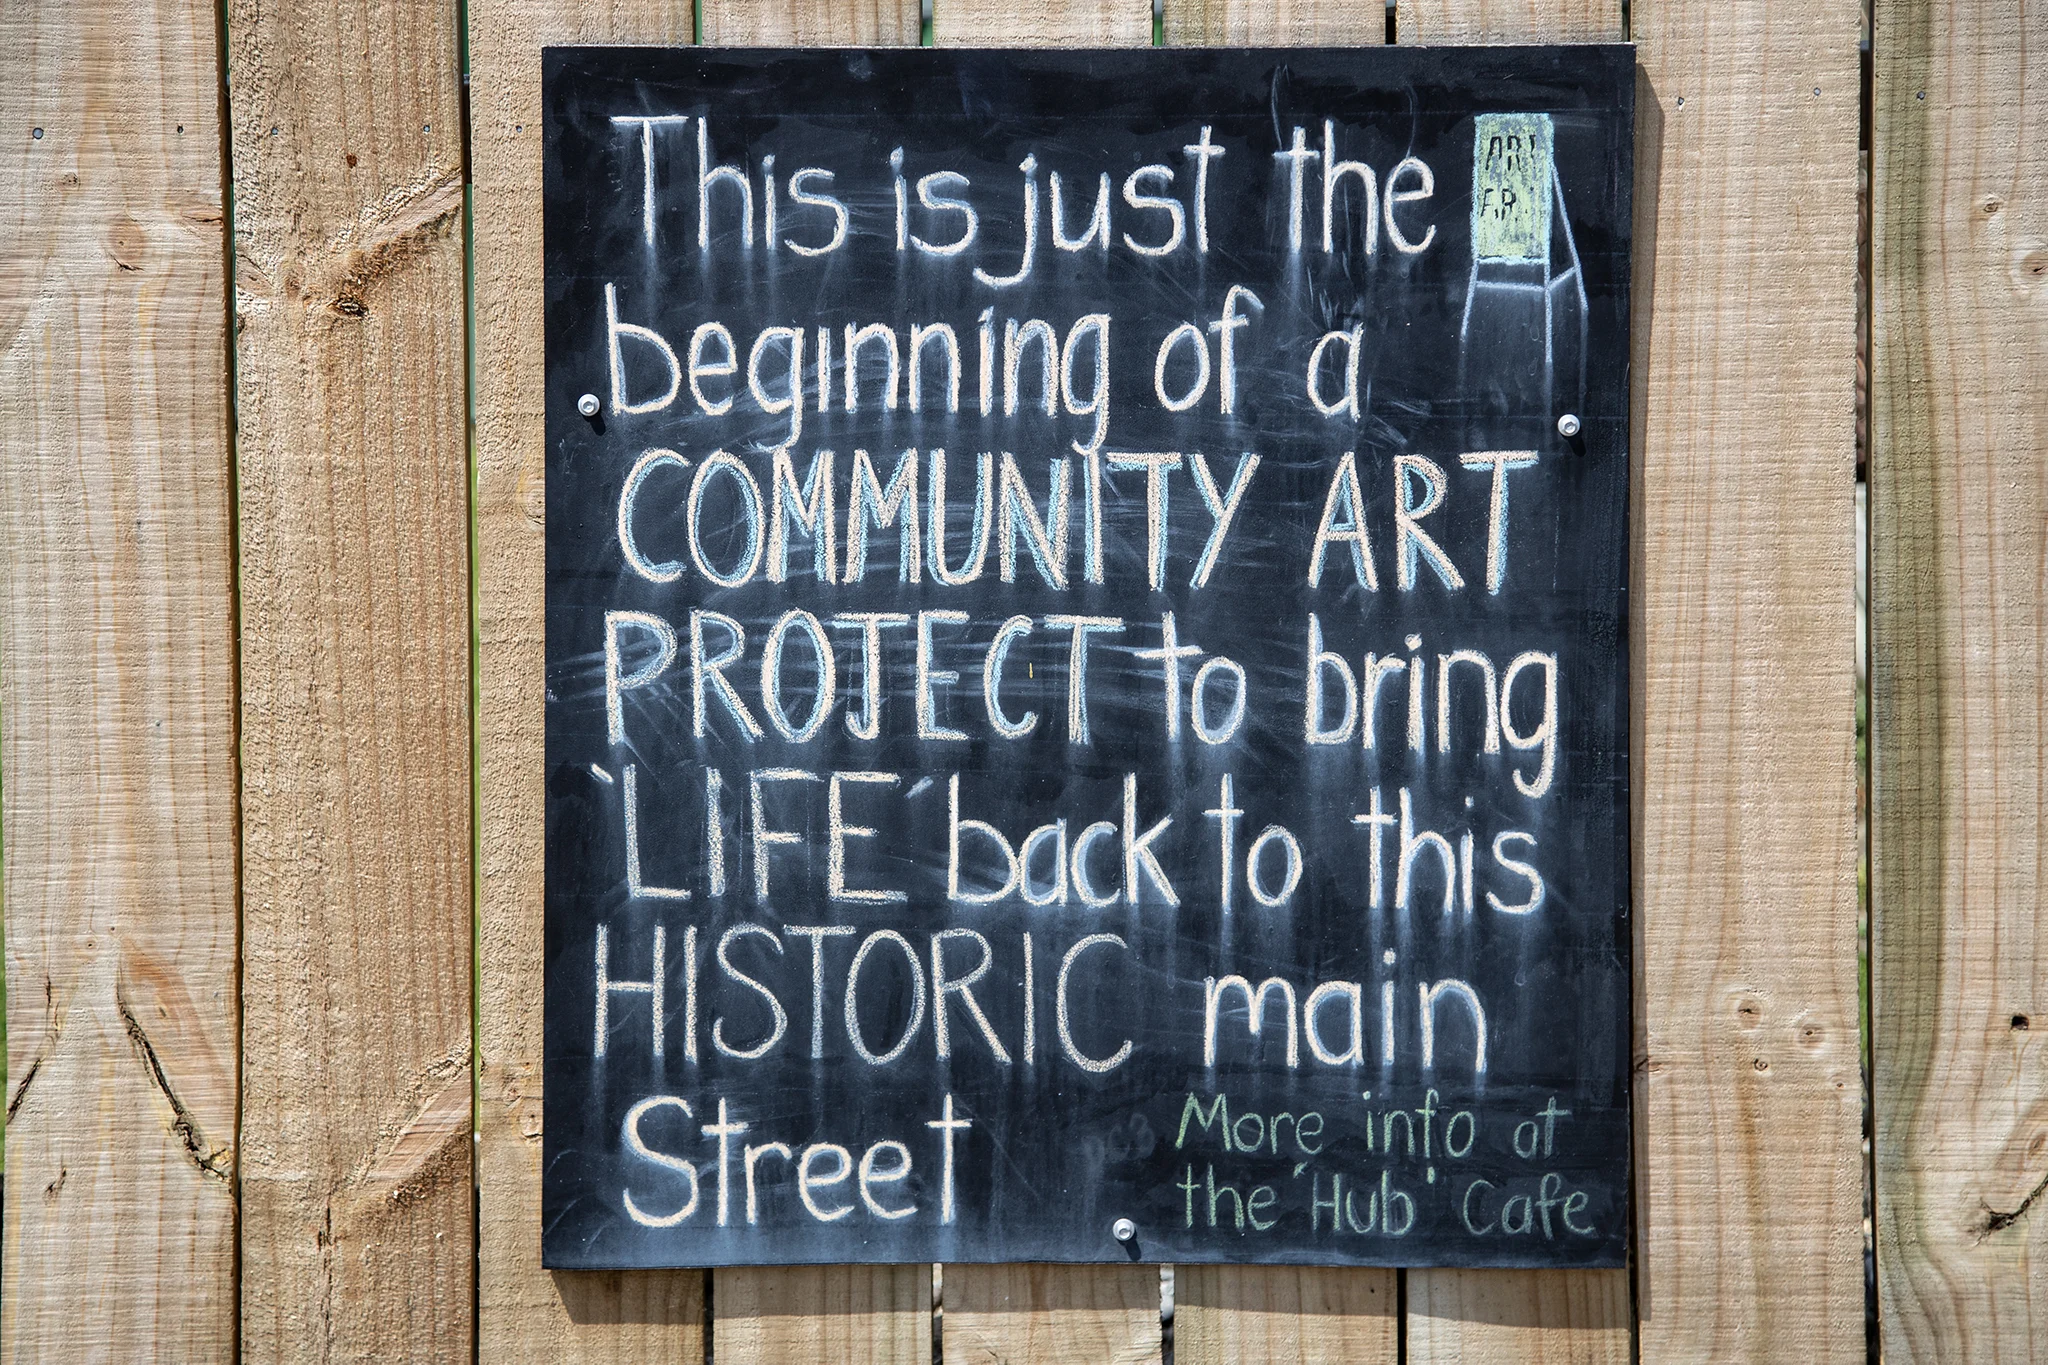 This is just the
beginning of a
COMMUNITY ART
PROJECT to bring
'LIFE' back to this
HISTORIC main
Street
ART
More info at
the 'Hub' Cafe